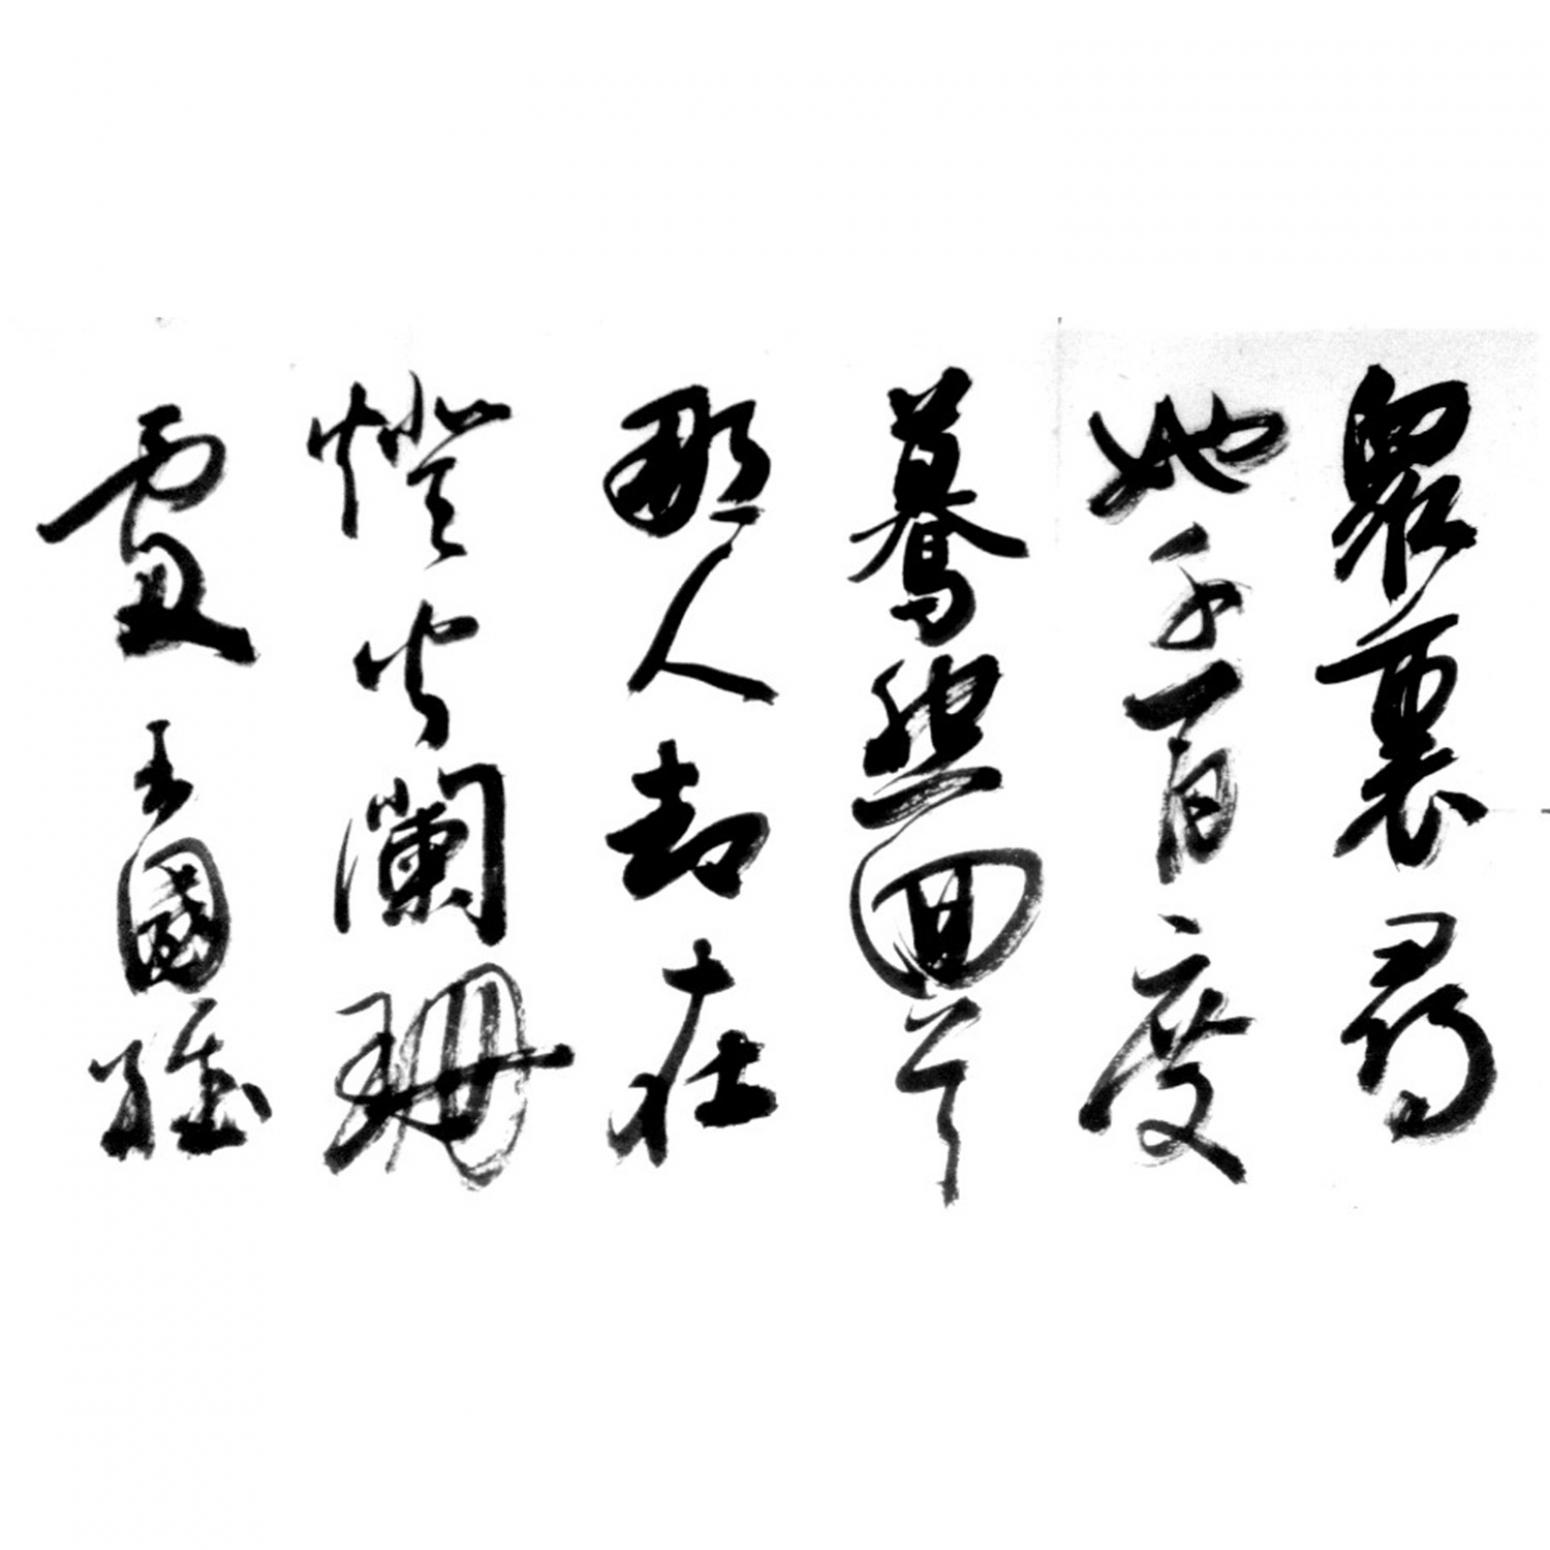 眾裏尋
她千百度
驀然回首
那人却在
燈火瀾珊
處 王國維